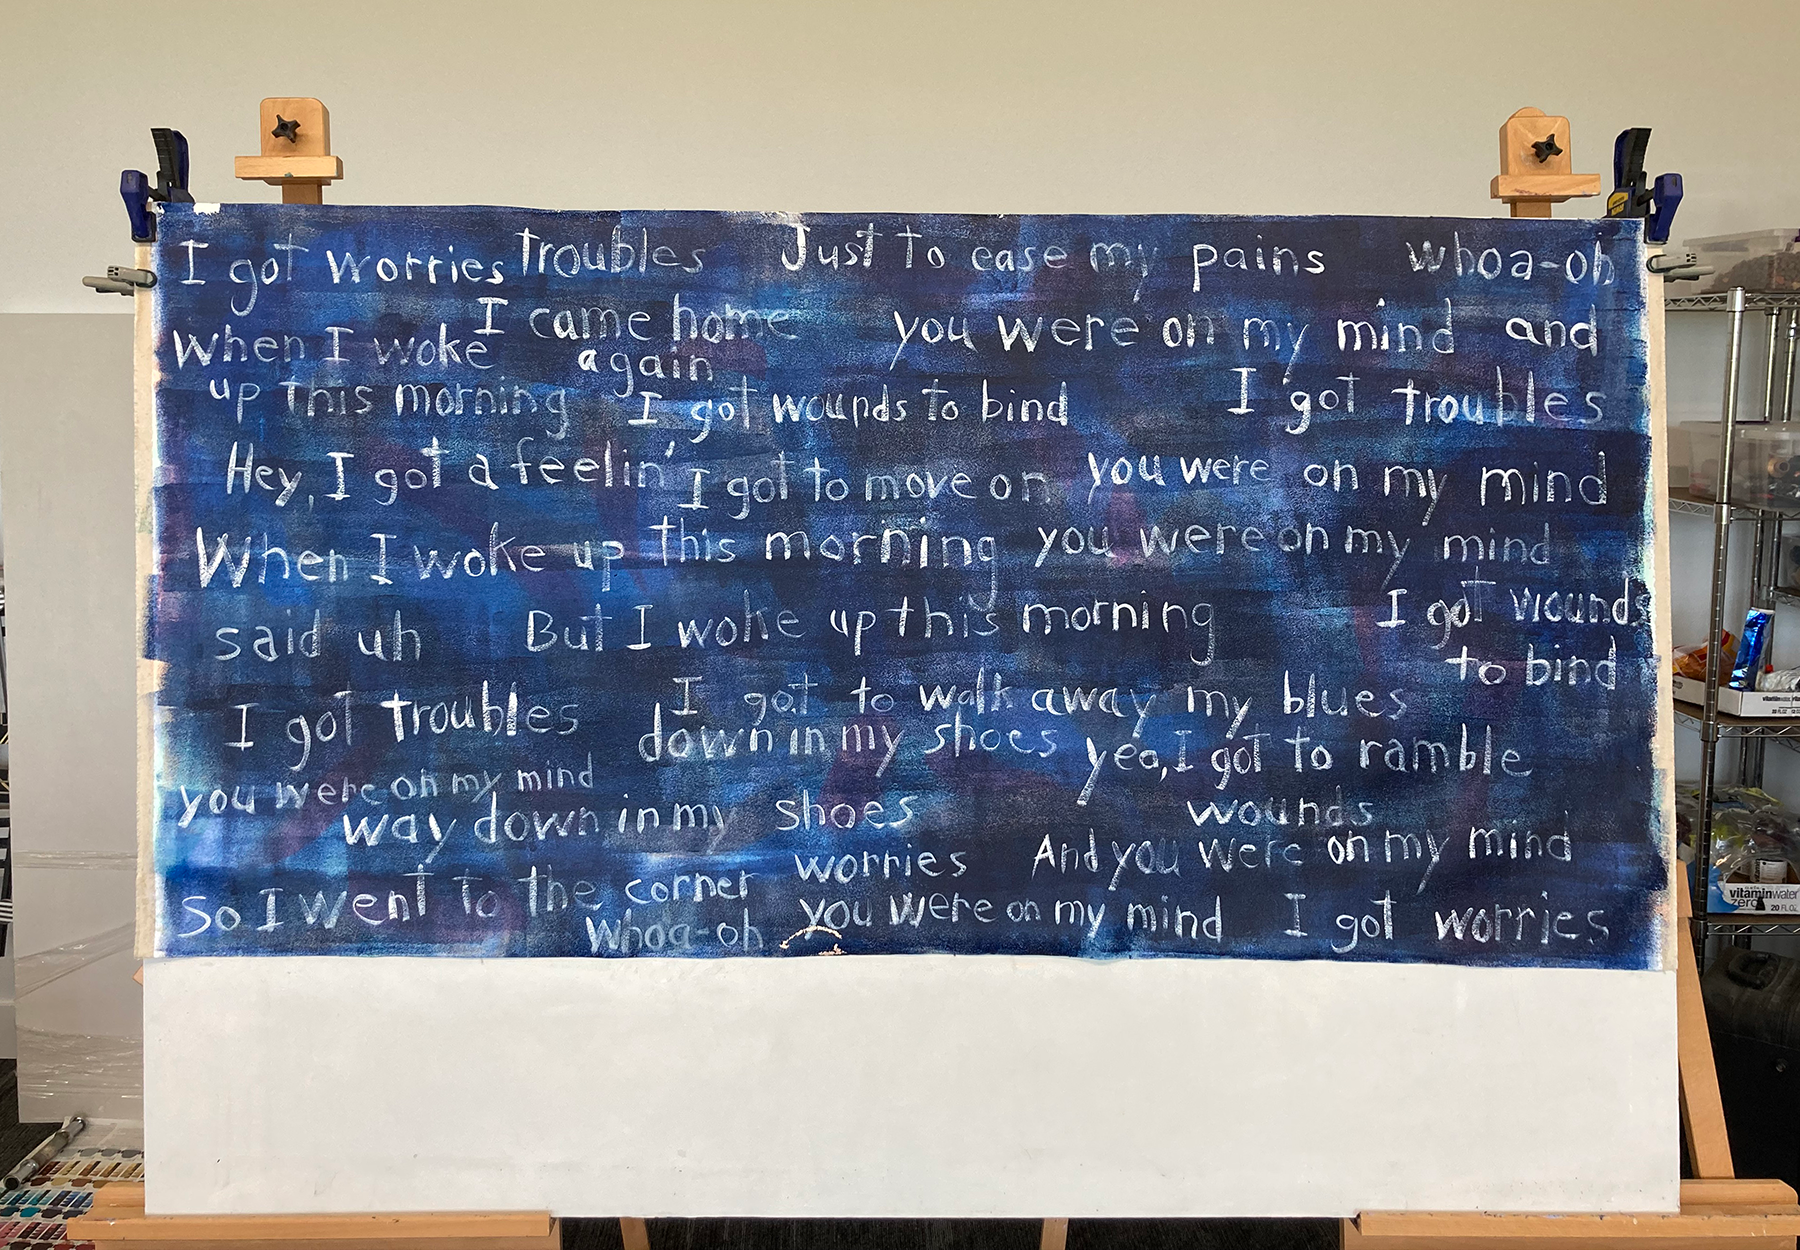 I got worries troubles Just to ease my pains whoa-oh
I came home you were on my mind and
When I woke again
up this morning I got wounds to bind I got troubles
Hey, I got a feelin' I got to move on you were on my mind
When I woke up this morning you were on my mind
said uh But I woke up this morning I got wounds
to bind
I got troubles I got to walk away my blues
down in my shoes yea, I got to ramble
you were on my mind
way down in my shoes wounds
worries And you were on my mind
So I went to the corner
Whoa-oh you were on my mind I got worries
vitaminwater
zero
20 FL OZ